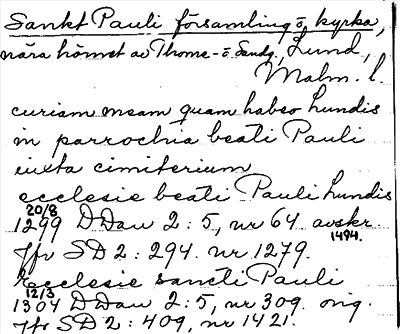 Sankt Pauli församling o. kyrka,
nära hörnet av Thome- o. Sandg., Lund,
Malm. l.
curiam meam quam habeo Lundis
in parrochia beati Pauli
iuxta cimiterium
ecclesie beati Pauli Lundis
20/8
1299 DDan 2:5, nr 64 avskr
1494.
Jfr SD 2:294. nr 1279.
Ecclesie sancti Pauli
12/3
1304 DDan 2:5, nr 309. orig.
Jfr SD 2:409, nr 1421.